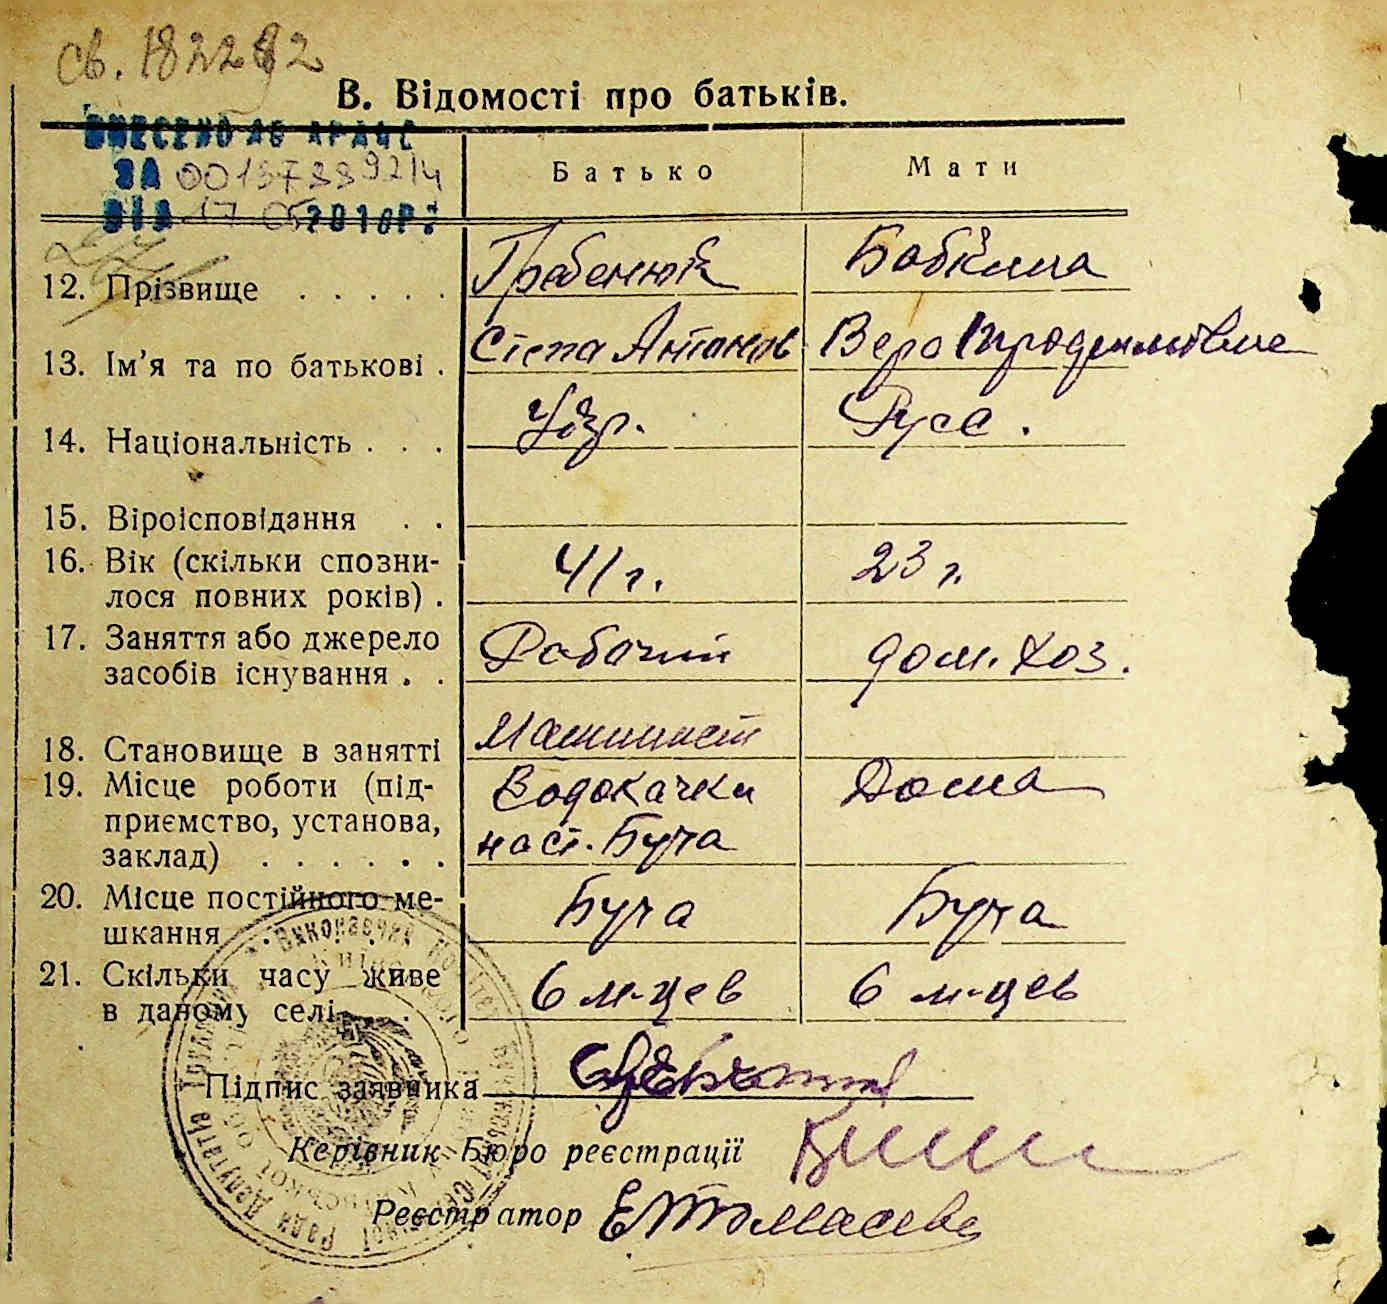 св. 182282
В. Відомості про батьків.
ВНЕСЕНО ДО ДРАЦС
ЗА
ВІД 17 05 2010Р.
Батько Мати
12. Прізвище . . . . . Гребенюк
13. Ім'я та по батькові . Степа Антонов Вера
14. Національність . . . Укр. Русс.
15. Віроісповідання . .
16. Вік (скільки спозни- 41 г. 23 г.
лося повних років) .
17. Заняття або джерело Рабочий дом. хоз.
засобів існування . .
18. Становище в занятті Машинист
19. Місце роботи (під- Водокачки Дома
приємство, установа, наст. Буча
заклад) . . . . . .
20. Місце постійного ме- Буча Буча
шкання
21. Скільки часу живе 6 м-цев 6 м-цев
в даному селі
Підпис заявника
Керівник Бюро реєстрації
Реєстратор